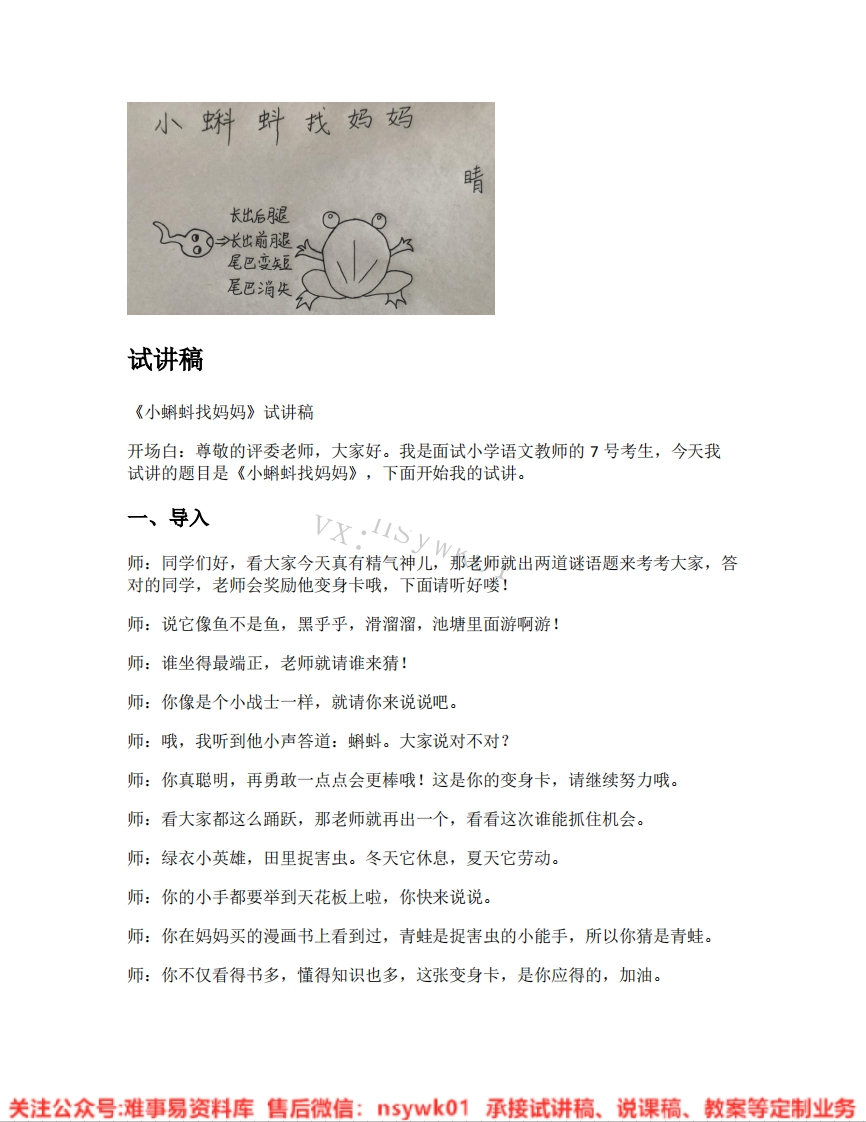 小蝌蚪找妈妈
睛
长出后腿
长出前腿
尾巴变短
尾巴消失
试讲稿
《小蝌蚪找妈妈》试讲稿
开场白：尊敬的评委老师，大家好。我是面试小学语文教师的 7 号考生，今天我
试讲的题目是《小蝌蚪找妈妈》，下面开始我的试讲。
一、导入
VX：nsywk01
师：同学们好，看大家今天真有精气神儿，那老师就出两道谜语题来考考大家，答
对的同学，老师会奖励他变身卡哦，下面请听好喽！
师：说它像鱼不是鱼，黑乎乎，滑溜溜，池塘里面游啊游！
师：谁坐得最端正，老师就请谁来猜！
师：你像是个小战士一样，就请你来说说吧。
师：哦，我听到他小声答道：蝌蚪。大家说对不对？
师：你真聪明，再勇敢一点点会更棒哦！这是你的变身卡，请继续努力哦。
师：看大家都这么踊跃，那老师就再出一个，看看这次谁能抓住机会。
师：绿衣小英雄，田里捉害虫。冬天它休息，夏天它劳动。
师：你的小手都要举到天花板上啦，你快来说说。
师：你在妈妈买的漫画书上看到过，青蛙是捉害虫的小能手，所以你猜是青蛙。
师：你不仅看得书多，懂得知识也多，这张变身卡，是你应得的，加油。
关注公众号:难事易资料库 售后微信：nsywk01 承接试讲稿、说课稿、教案等定制业务